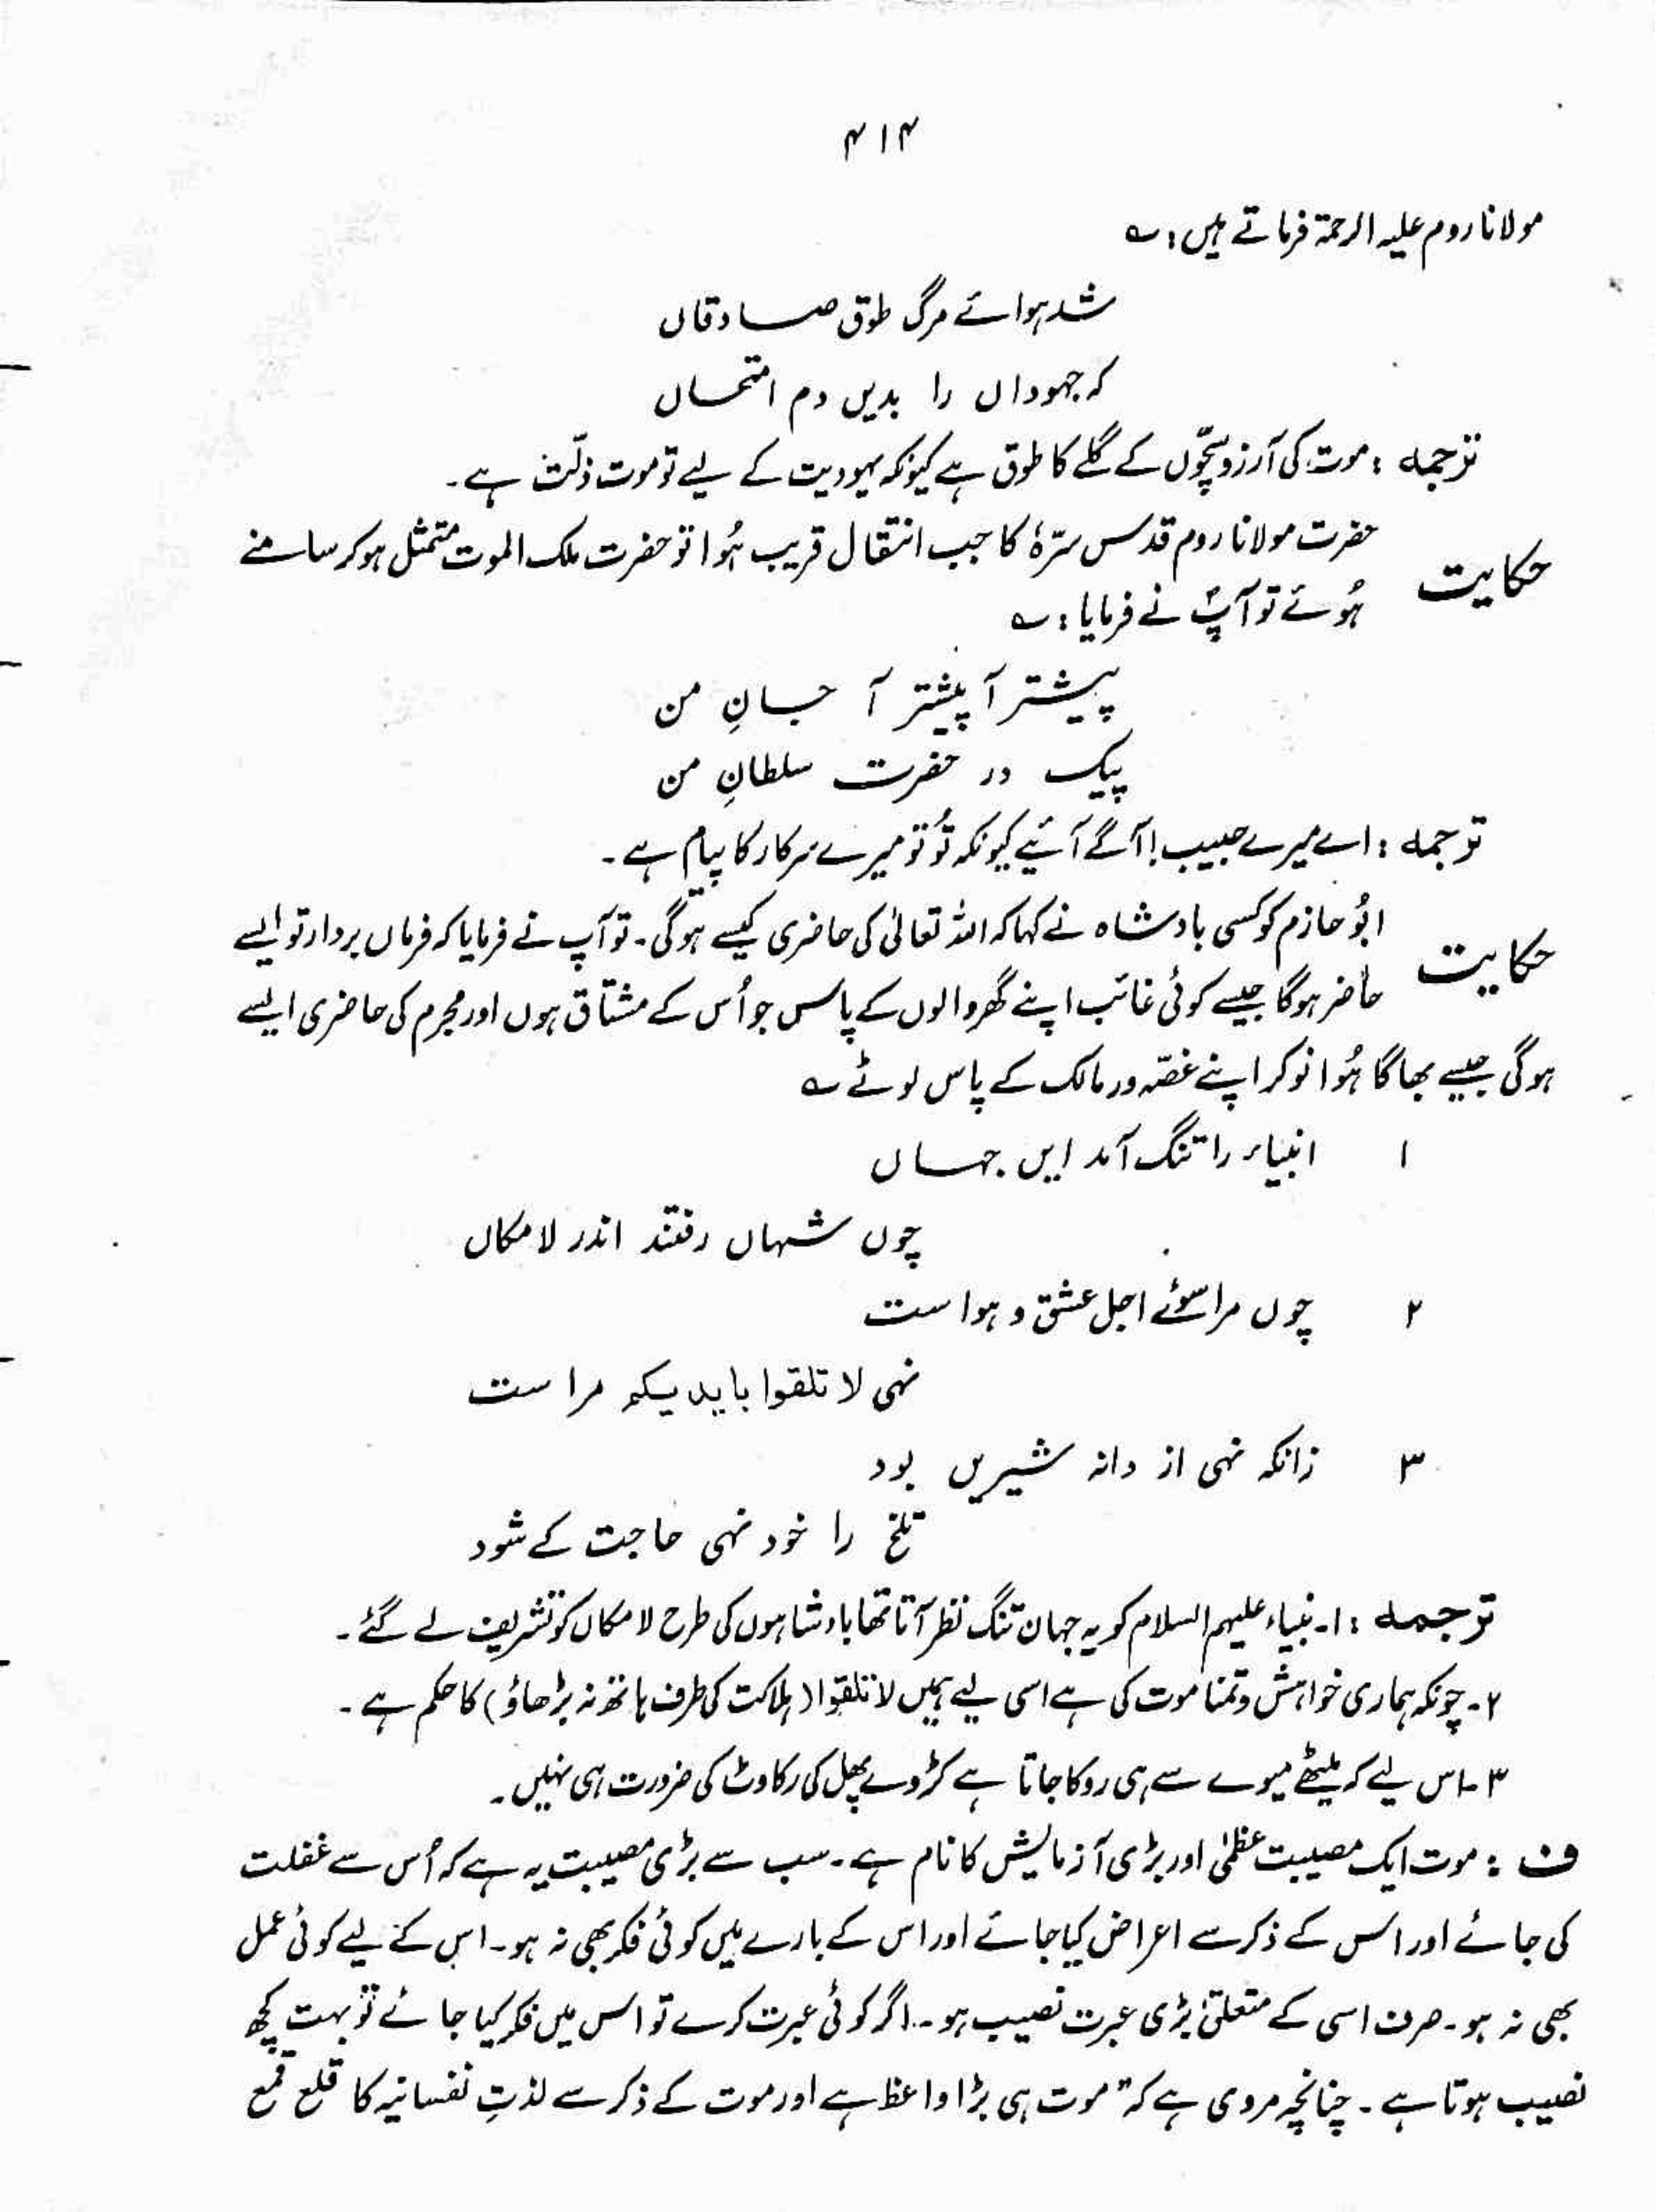 ۴۱۴
مولانا روم علیہ الرحمۃ فرماتے ہیں : ؎
شد ہوائے مرگ طوق صادقاں
کہ جہوداں را بدیں دم امتحاں
ترجمہ : موت کی آرزو سچّوں کے گلے کا طوق ہے کیونکہ یہودیت کے لیے تو موت ذلّت ہے۔
حکایت حضرت مولانا روم قدس سرّہٗ کا جب انتقال قریب ہُوا تو حضرت ملک الموت متمثل ہو کر سامنے
ہُوئے تو آپؒ نے فرمایا : ؎
پیشتر آ پیشتر آ جانِ من
پیک در حضرت سلطانِ من
ترجمہ : اے میرے حبیب ! آگے آئیے کیونکہ تُو تو میرے سرکار کا پیام ہے۔
حکایت ابُو حازم کو کسی بادشاہ نے کہا کہ اللہ تعالیٰ کی حاضری کیسے ہوگی۔ تو آپ نے فرمایا کہ فرماں بردار تو ایسے
حاضر ہوگا جیسے کوئی غائب اپنے گھر والوں کے پاس جو اُس کے مشتاق ہوں اور مجرم کی حاضری ایسے
ہوگی جیسے بھاگا ہُوا نوکر اپنے غصّہ ور مالک کے پاس لوٹے ؎
۱ انبیاء را تنگ آمد ایں جہاں
چوں شہاں رفتند اندر لامکاں
۲ چوں مرا سُوئے اجل عشق و ہوا ست
نہی لا تلقوا بایدیکم مرا ست
۳ زانکہ نہی از دانہ شیریں بود
تلخ را خود نہی حاجت کے شود
ترجمہ : ۱۔ نبیاء علیہم السلام کو یہ جہان تنگ نظر آتا تھا بادشاہوں کی طرح لامکاں کو تشریف لے گئے۔
۲۔ چونکہ ہماری خواہش و تمنا موت کی ہے اسی لیے ہمیں لا تلقوا (ہلاکت کی طرف ہاتھ نہ بڑھاؤ) کا حکم ہے۔
۳۔ اس لیے کہ میٹھے میوے سے ہی روکا جاتا ہے کڑوے پھل کی رکاوٹ کی ضرورت ہی نہیں۔
ف : موت ایک مصیبت عظمٰی اور بڑی آزمایش کا نام ہے۔ سب سے بڑی مصیبت یہ ہے کہ اُس سے غفلت
کی جائے اور اس کے ذکر سے اعراض کیا جائے اور اس کے بارے میں کوئی فکر بھی نہ ہو۔ اس کے لیے کوئی عمل
بھی نہ ہو۔ صرف اسی کے متعلق بڑی عبرت نصیب ہو۔ اگر کوئی عبرت کرے تو اس میں فکر کیا جائے تو بہت کچھ
نصیب ہوتا ہے۔ چنانچہ مروی ہے کہ " موت ہی بڑا واعظ ہے اور موت کے ذکر سے لذتِ نفسانیہ کا قلع قمع